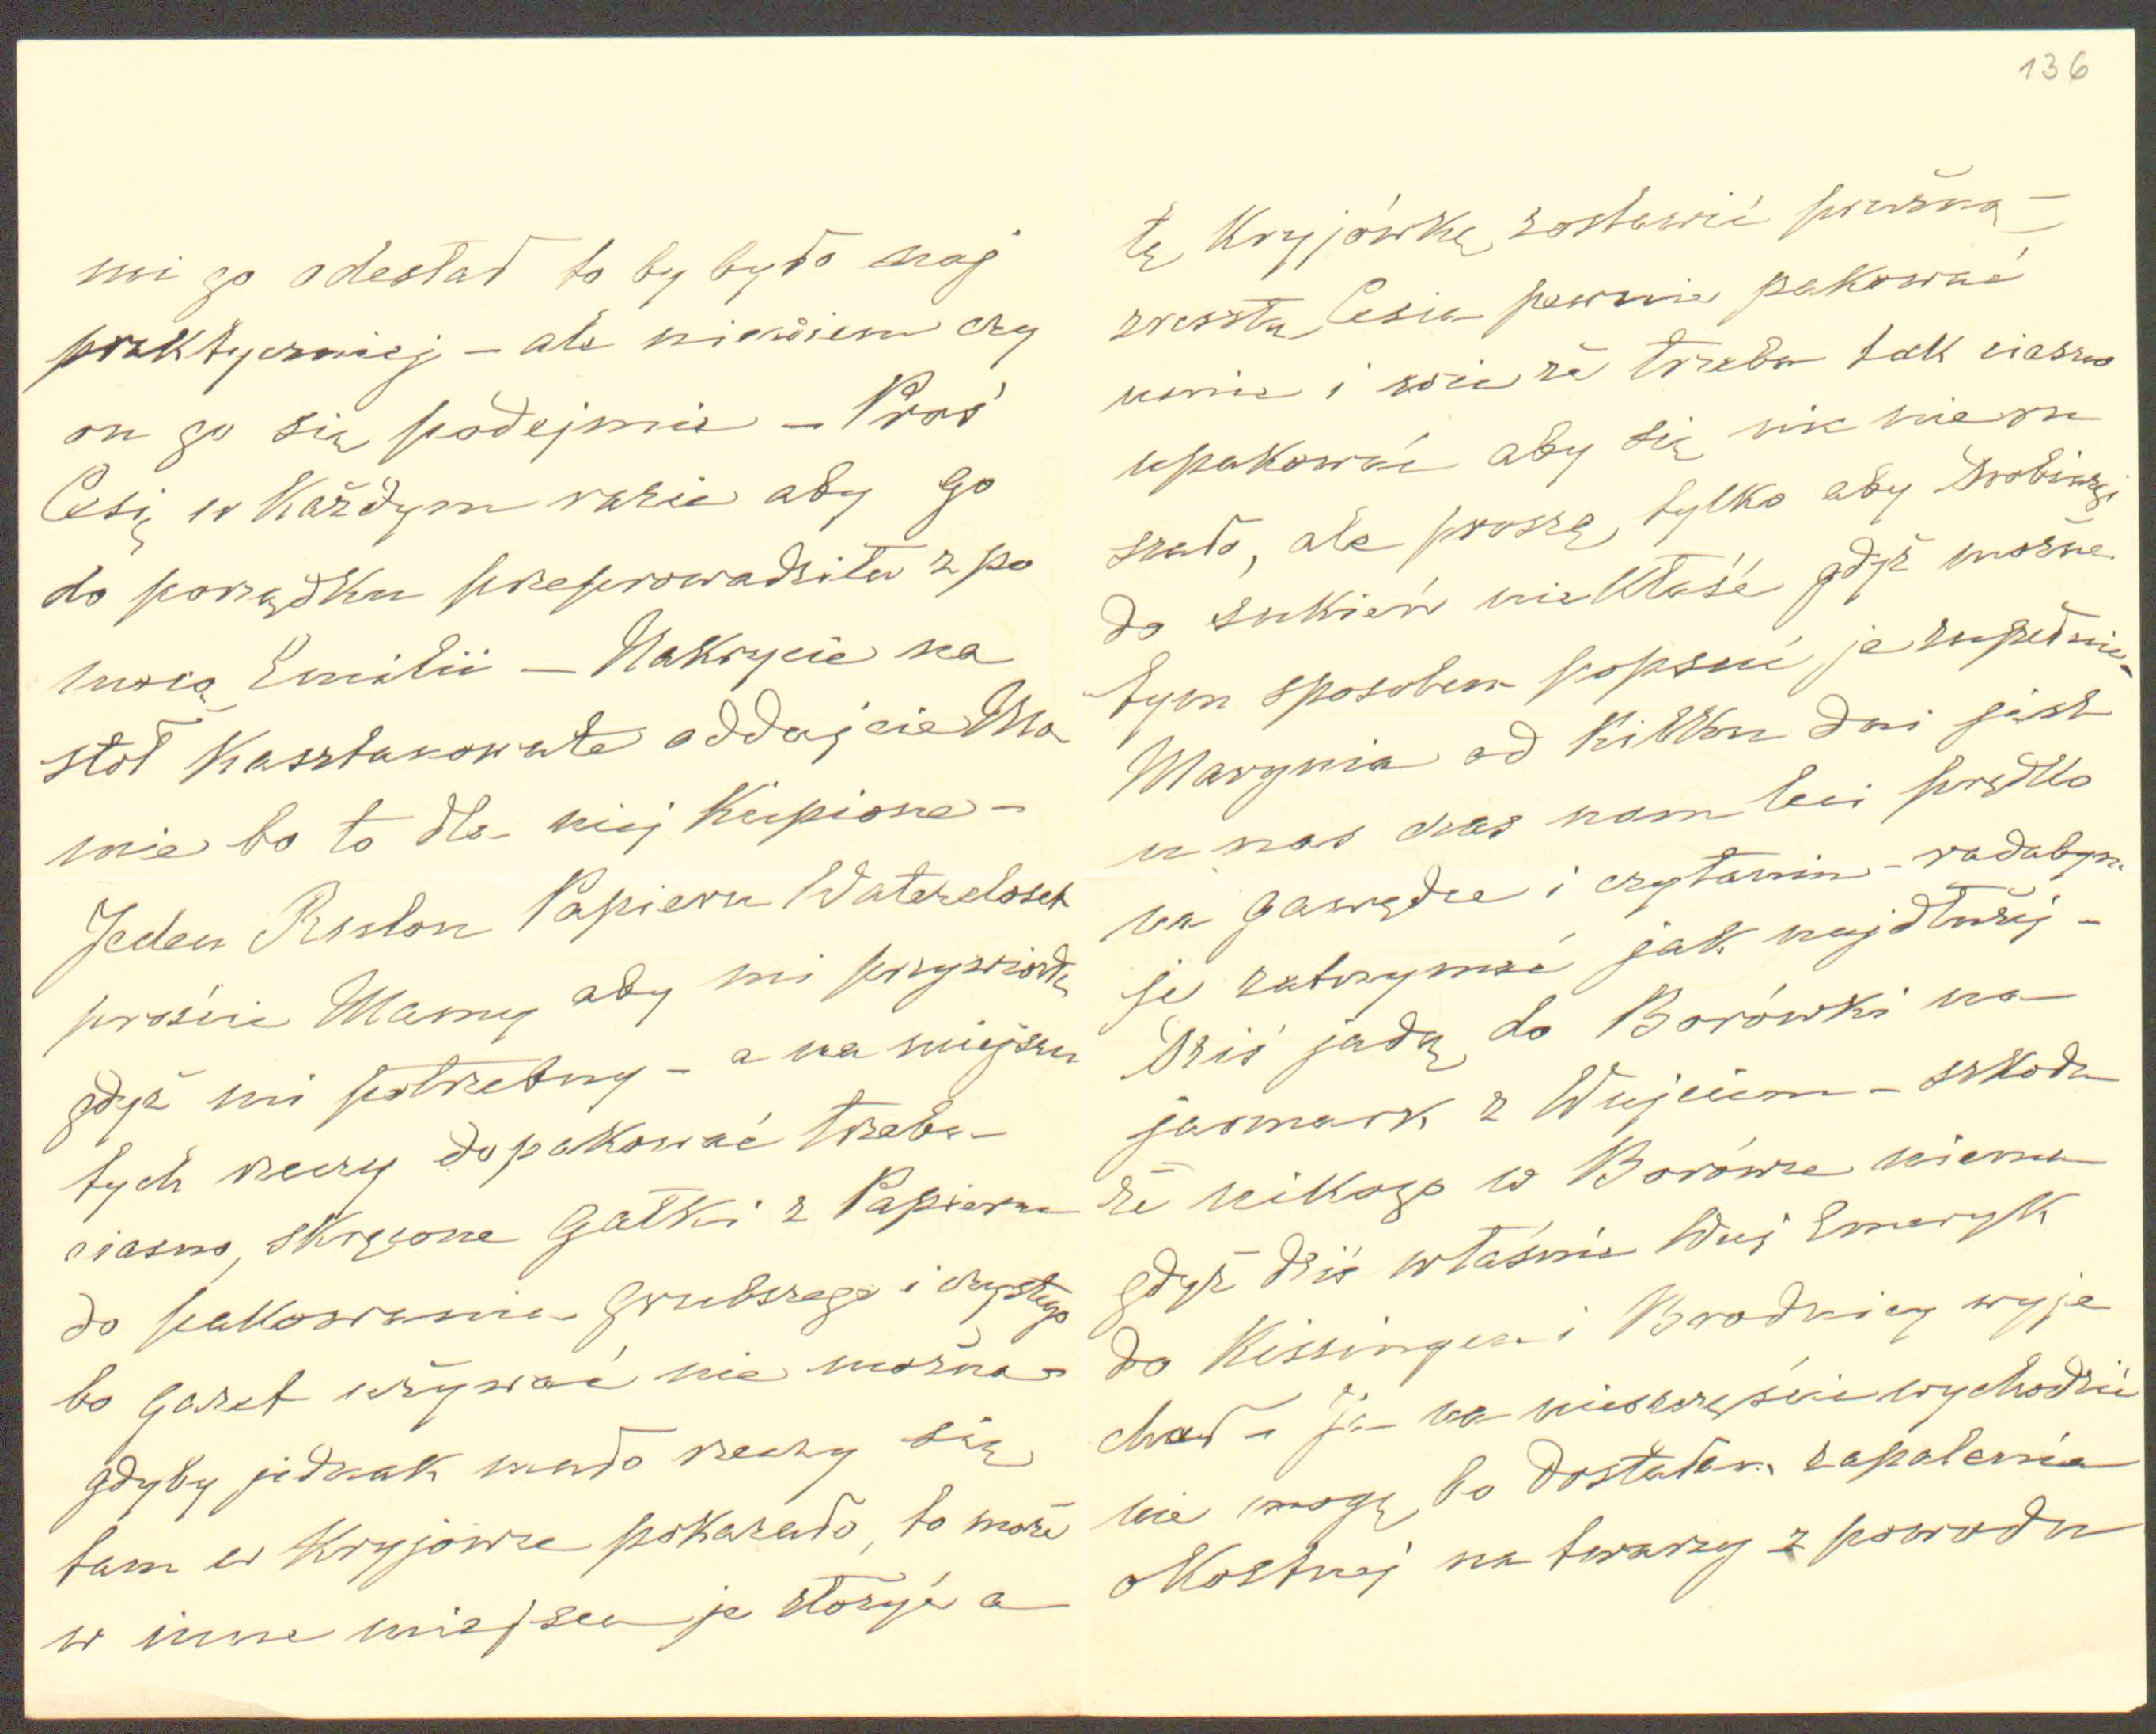 mi go odesłał to by było naj
praktyczniej – ale niewiem czy
on go się podejmie – Proś
Cesię w każdym razie aby go
do porządku przeprowadziła z po
mocą Emilii – Nakrycie na
stół kasztanowate oddajcie Ma
mie bo to dla niej kupione –
Jeden Rulon Papieru Watercloset
proście Mamy aby mi przywiozła
gdyż mi potrzebny – a na miejscu
tych rzeczy dopakować trzeba
ciasno, skręcone Gałki z Papieru
do pakowania grubszego i czystego
bo gazet używać nie można –
gdyby jednak mało rzeczy się
tam w Kryjówce pokazało, to może
w inne miejsce je złożyć a
136
tę Kryjówkę zostawić prużną –
zresztą Cesia pewnie pakować
umie i wie że trzeba tak ciasno
upakować aby się nic nie ru
szało, ale proszę tylko aby Drobiazgi
do sukień niekłaść gdyż można
tym sposobem popsuć je zupełnie –
Marynia od kilku dni jest
u nas czas nam leci prędko
na gawędce i czytaniu – radabym
ję zatrzymać jak najdłużej –
Dziś jadą do Borówki na
jarmark z Wujciem – szkoda
że nikogo w Borówce niema
gdyż dziś właśnie Wuj Emeryk
do Kissingen i Brodnicy wyje
chał – Ja na nieszczęście wychodzić
nie mogę bo dostałam zapalenia
okostnej na twarzy z powodu